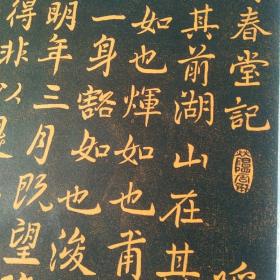 春堂記
其前湖山在其
如也煇如也甫
一身豁如也浚
明年三月既望
得非以